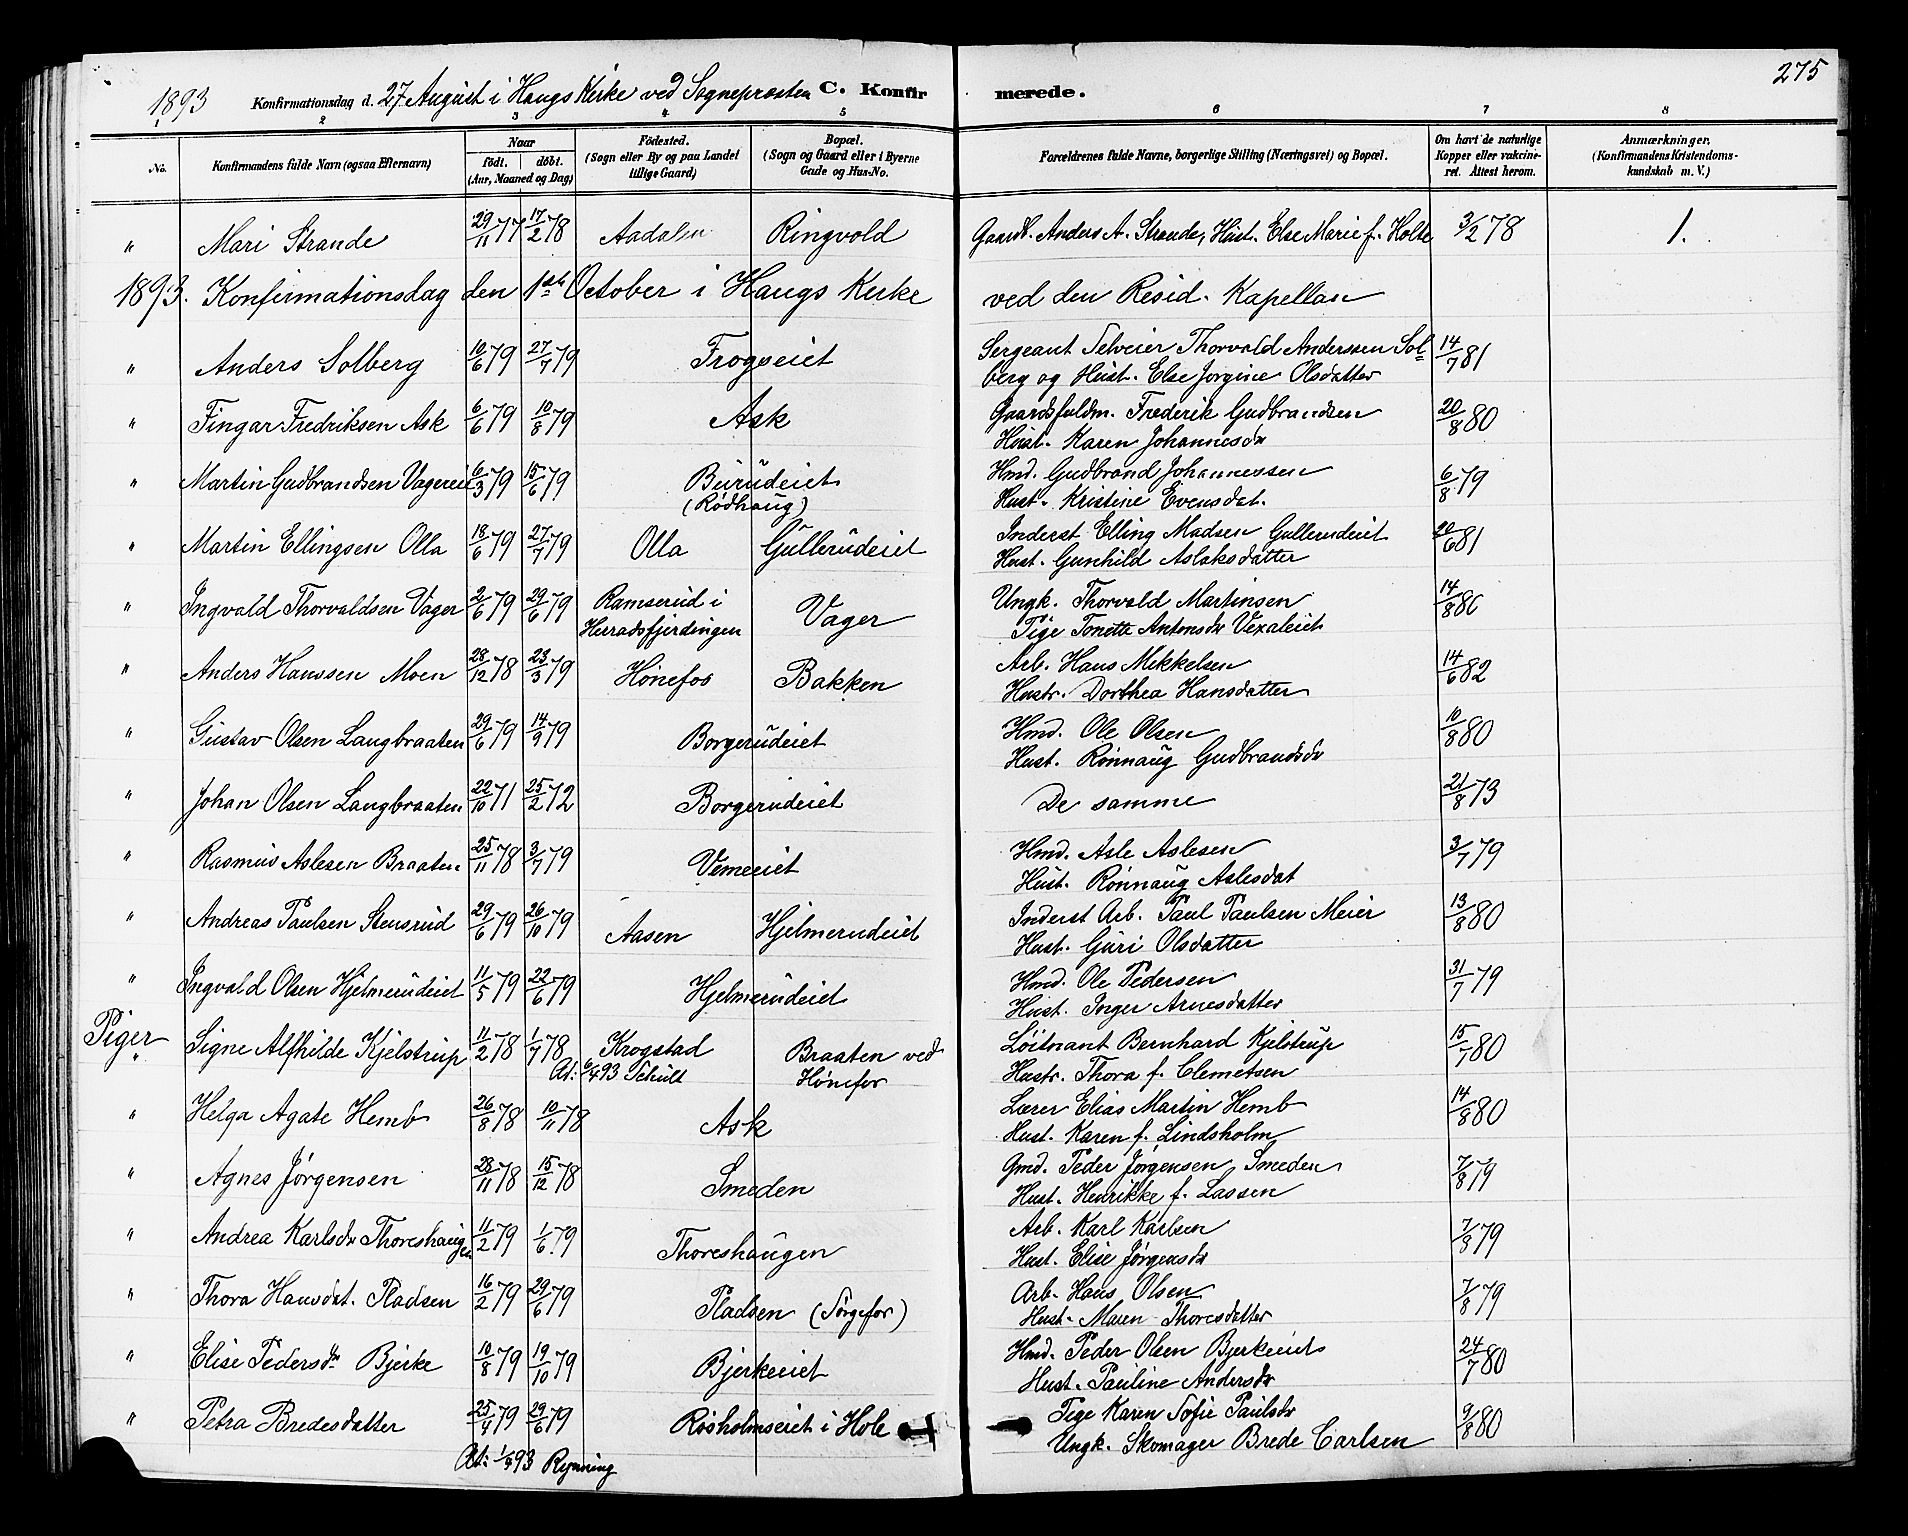 275
1893 Konfirmationsdag d. 27 August i Haugs Kirke ved Sogneprosten C. Konfirmerede.
1 2 3 4 5 6 7 8
No. Konfirmandens fulde Navn (ogsaa Efternavn) Naar födt. döbt. (Aar, Maaned og Dag) Födested. (Sogn eller By og paa Landet tillige Gaard) Bopæl. (Sogn og Gaard eller i Byerne Gade og Hus-No. Forældrenes fulde Navne, borgerlige Stilling (Næringsvei) og Bopæl. Om havt de naturlige Kopper eller vakcineret. Attest herom. Anmærkninger. (Konfirmandens Kristendomskundskab m. V.)
" Mari Strande 29/11 77 17/2 78 Aadalen Ringvold Gaardb. Anders A. Strande, Hust. Else Marie f. Holte 3/2 78 1.
1893. Konfirmationsdag den 1ste October i Haugs Kirke ved den Resid. Kapellan
" Anders Solberg 10/6 79 27/7 79 Frogseiet Sergeant Thorvald Anderssen Solberg og Hust. Else Jorgine Olsdatter 14/7 81
" Fingar Fredriksen Ask 6/6 79 10/8 79 Ask Gaardsfuldm. Frederik Gudbrandsen
Hust. Karen Johannesdr 20/8 80
" Martin Gudbrandsen Vagereie 6/3 79 15/6 79 Beirudeiet
(Rødhaug) Hmd. Gudbrand Johannessen
Hust. Kristine Evensdat. 6/8 79
" Martin Ellingsen Olla 18/6 79 27/7 79 Olla Gullerudeiet Inderst Elling Madsen Gullerudeiet
Hust. Gunhild Aslaksdatter 20/6 81
" Ingvald Thorvaldsen Vager 2/6 79 29/6 79 Ramserud i
Herradsfjerdingen Vager Ungk. Thorvald Martinsen
Pige Tonette Antonsdr Vexaleiet 14/8 80
" Anders Hanssen Moen 28/12 78 23/3 79 Hønefos Bakken Arb. Hans Mikkelsen
Hustr. Dorthea Hansdatter 14/6 82
" Gustav Olsen Langbraaten 29/6 79 14/9 79 Borgerudeiet Hmd. Ole Olsen
Hust. Rønnaug Gudbrandsdr 10/8 80
" Johan Olsen Langbraaten 22/10 71 25/2 72 Borgerudeiet De samme 21/8 73
" Rasmus Aslesen Braaten 25/11 78 3/7 79 Vemeeiet Hmd. Asle Aslesen
Hust. Rønnaug Aslesdat 3/7 79
" Andreas Paulsen Stensrud 29/6 79 26/10 79 Aasen Hjelmerudeiet Inderst Arb. Paul Paulsen Meier
Hust. Guri Olsdatter 13/8 80
" Ingvald Olsen Hjelmerudeiet 11/5 79 22/6 79 Hjelmerudeiet Hmd. Ole Pedersen
Hust. Inger Arnesdatter 31/7 79
Piger
" Signe Alfhilde Kjelstrup 11/2 78 1/7 78 Krogstad Braaten ved
Hønefos Løitnant Bernhard Kjelstrup
At: 6/4 93 Schult Hustr. Thora f. Clemetsen 15/7 80
" Helga Agate Hemb 26/8 78 10/11 78 Ask Lærer Elias Martin Hemb
Hust. Karen f. Lindsholm 14/8 80
" Agnes Jørgensen 28/11 78 15/12 78 Smeden Gmd. Peder Jørgensen Smeden
Hust. Henrikke f. Lassen 7/8 79
" Andrea Karlsdr Thoreshaugen 11/2 79 1/6 79 Thoreshaugen Arb. Karl Karlsen
Hust. Elise Jørgensdr 7/8 79
" Thora Hansdat. Pladsen 16/2 79 29/6 79 Pladsen (Sørgefos) Arb. Hans Olsen
Hust. Maren Thoresdatter 7/8 79
" Elise Pedersdr Bjerke 10/8 79 19/10 79 Bjerkeeiet Hmd. Peder Olsen Bjerkeeiet
Hust. Pauline Andersdr 24/7 80
" Petra Bredesdatter 25/4 79 29/6 79 Røsholmseiet i Hole Pige Karen Sofie Paulsdr
Ungk. Skomager Brede Carlsen 9/8 80
At: 1/5 93 Rynning